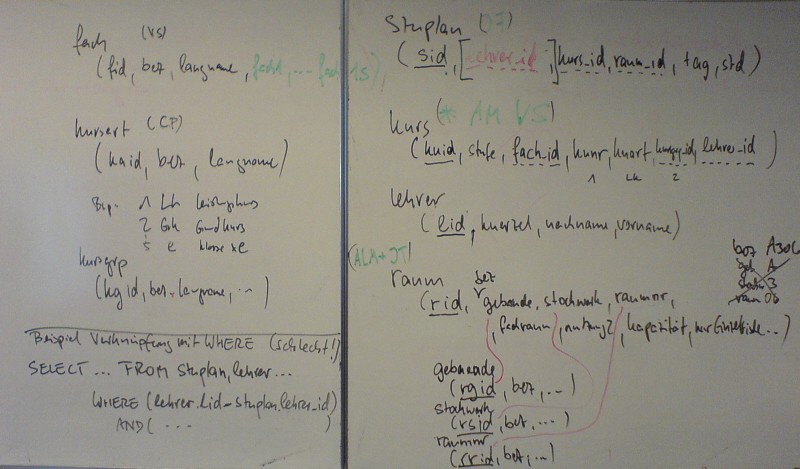 fach (VS)
(fid, bez, langname, fach1, ... fach15),
kursart (CP)
(kaid, bez, langname)
Bsp. 1 Lk Leistungskurs
2 Gk Grundkurs
5 e Klasse
kursgrp
(kgid, bez, langname, ...)
Beispiel Verknüpfung mit WHERE (schlecht!)
SELECT ... FROM stuplan, lehrer ...
WHERE (lehrer.lid=stuplan.lehrer_id)
AND ( ... )
Stuplan
(sid, [lehrer_id,] kurs_id, raum_id, tag, std)
kurs (* AM VS)
(kuid, stufe, fach_id, kunr, kuart, kursgrp_id, lehrer_id)
1 LK 2
lehrer
(lid, kuerzel, nachname, vorname)
(ALM+JT)
raum
bez
(rid, gebaeude, stockwerk, raumnr,
, fachraum, nutzung2, kapazität, ...)
bez A306
geb A
3
raum 06
gebaeude
(rgid, bez, ...)
stockwerk
(rsid, bez, ...)
raumnr
(rrid, bez, ...)